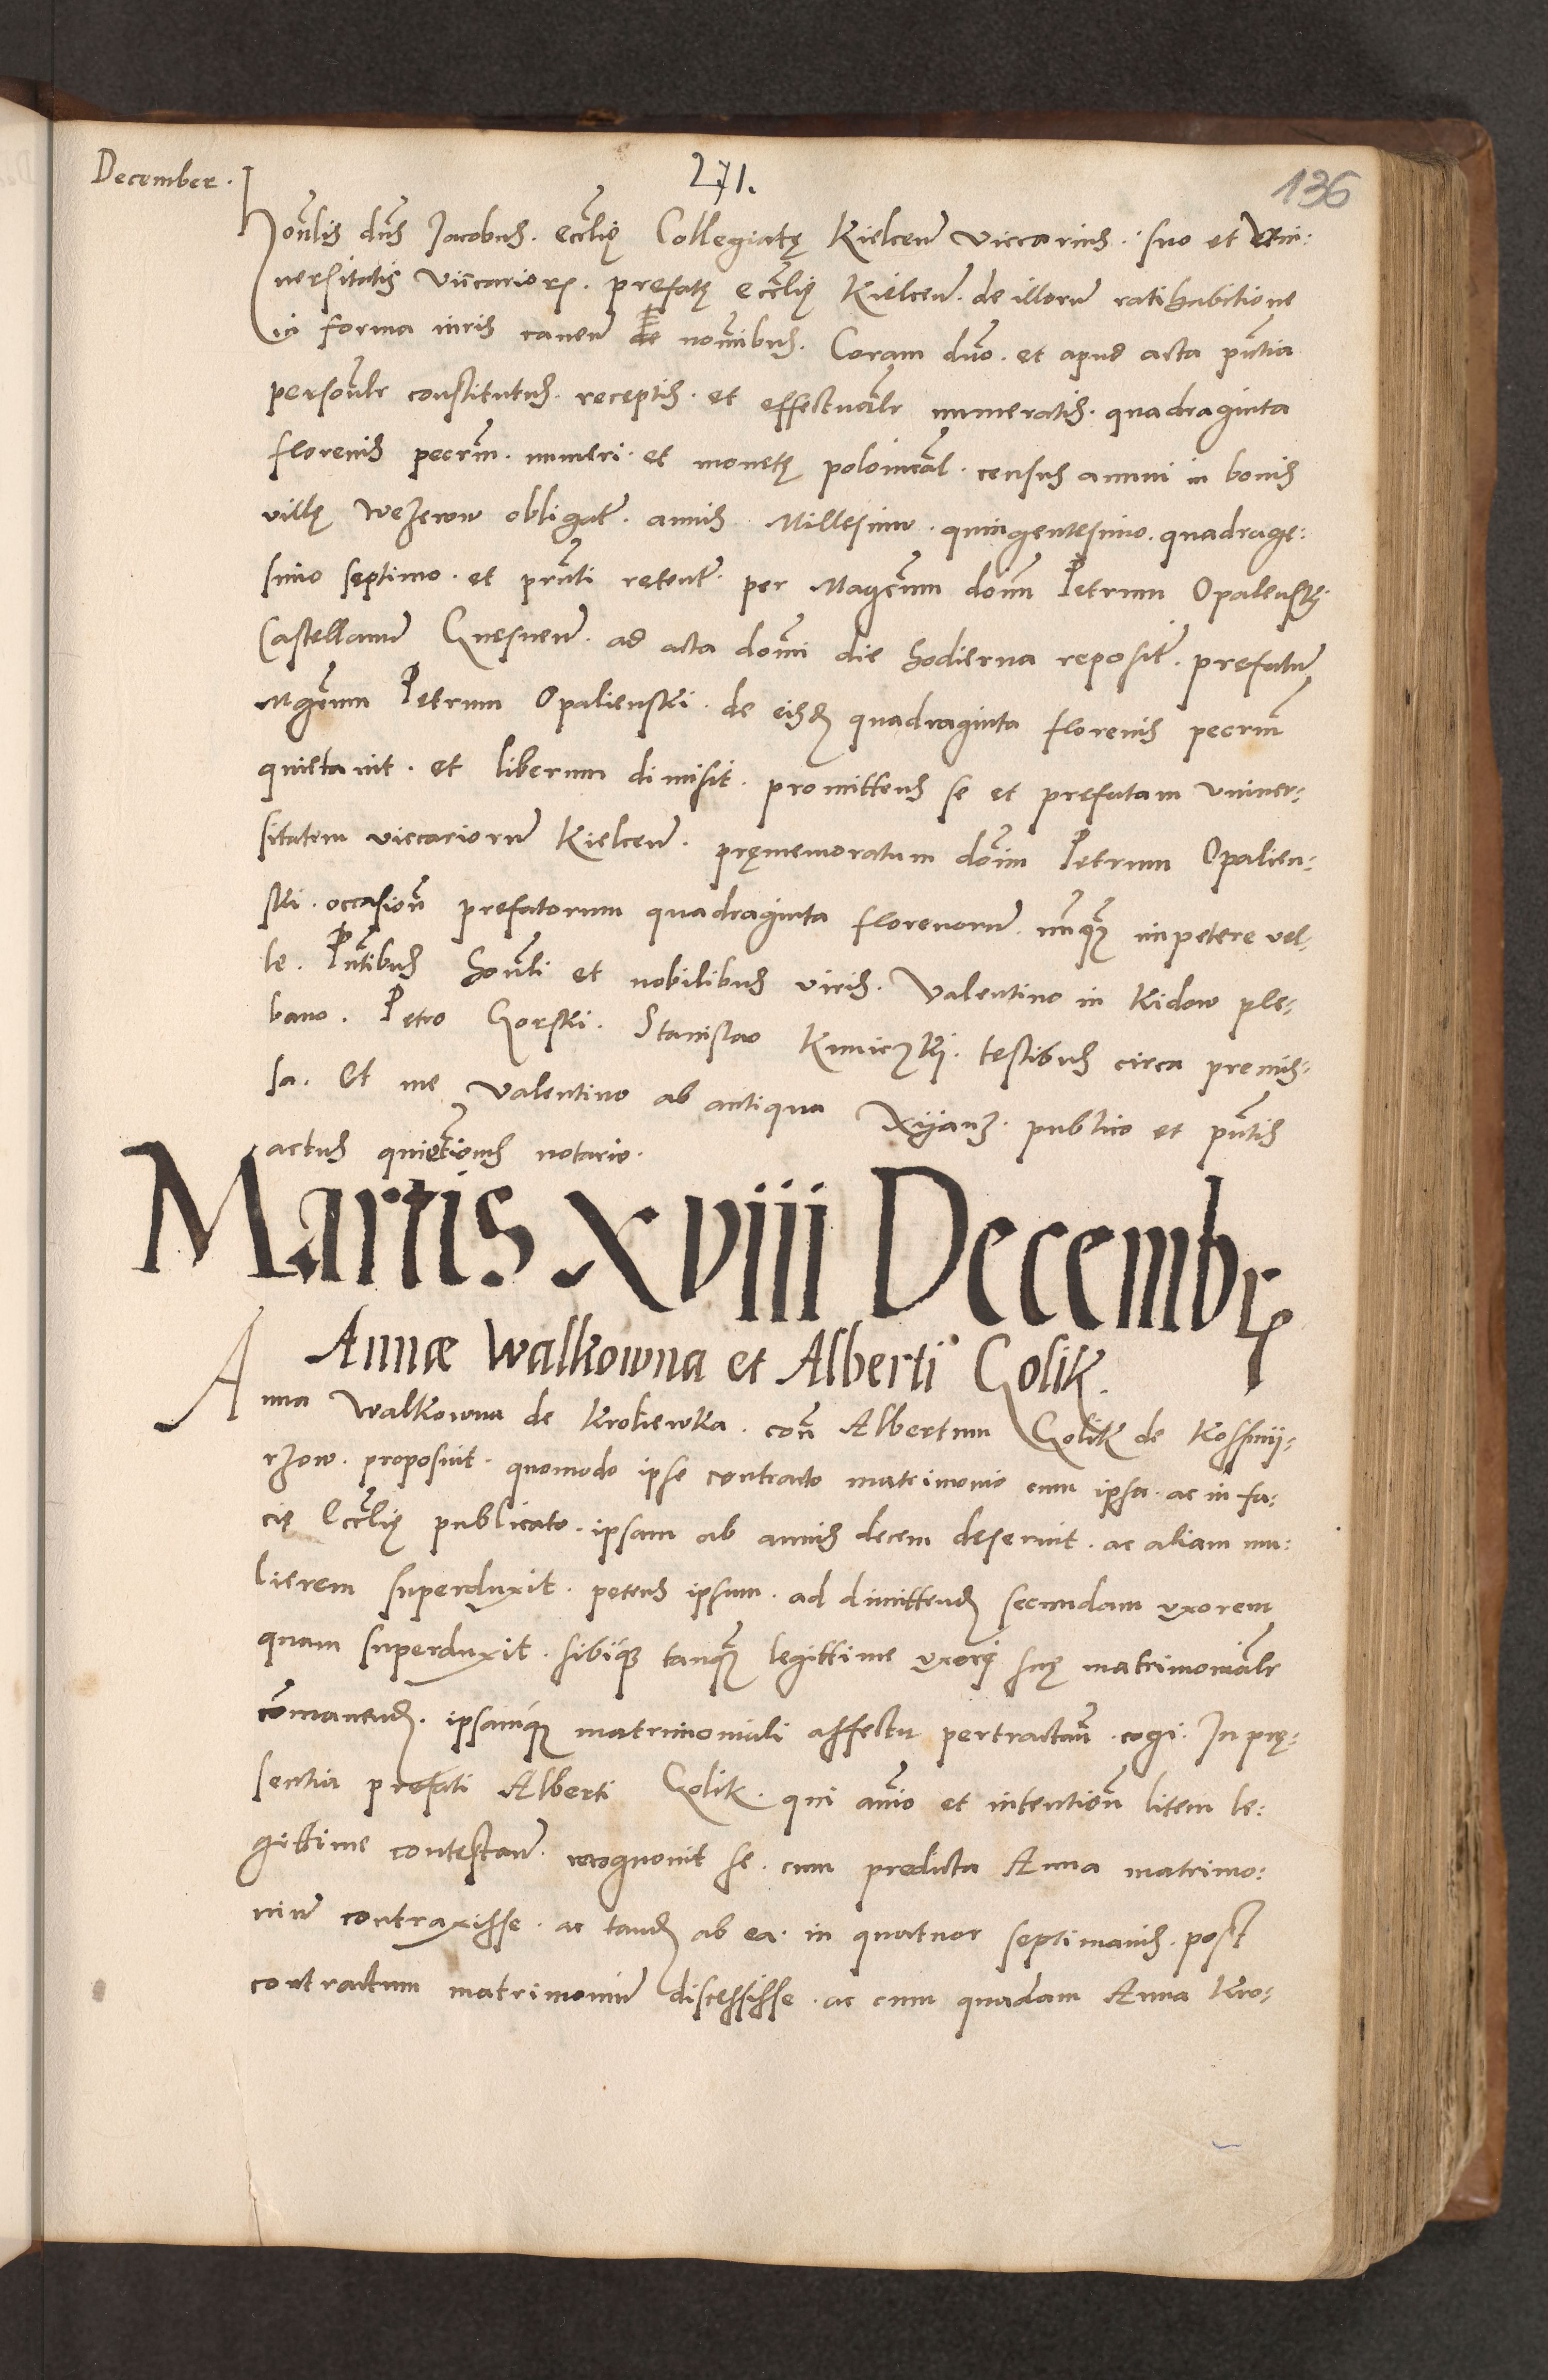 December.
271.
136
Honlis dns Jacobus. ecclię Collegiatę Kielcen viccarius. suo et Vni:
uersitatis viccariorum. prefatę ecclię Kielcen. de illorum ratihabitione
in forma iuris cauen de nominibus. Coram dno. et apud acta pntia
personlr constitutus. receptis. et effectualr numeratis. quadraginta
florenis pecrm. numeri. et monetę polonical. census annui in bonis
villę Wezerow obligat. annis Millesimo. quingentesimo. quadrage:
simo septimo. et prnti retent. per Magcum donm Petrum Opalensky
Castellanum Gnesnen. ad acta domi die hodierna reposit. prefatum
Mgcum Petrum Opalienski. de eisdem quadraginta florenis pecrm
quietauit. et liberum dimisit. promittens se et prefatam vniuer:
sitatem viccariorum Kielcen. pręmemoratum donm Petrum Opalien:
ski. occasion prefatorum quadraginta florenorum. nunquam impetere vel:
le. Pntibus honli et nobilibus viris. Valentino in Kidow ple:
bano. Petro Gorski. Stanislao Kmiczkj. testibus circa premis:
sa. Et me Valentino ab antiqua Xijanz. publico et pntis
actus quietionis notario.
Martis XVIII Decembr
Annæ Walkowna et Alberti Golik.
Anna Walkowna de Krolewka. con Albertum Golik de Kossmij:
rzow. proposuit. quomodo ipse contracto matrimonio cum ipsa. ac in fa:
cię Ecclię publicato. ipsam ab annis decem deseruit. ac aliam mu:
lierem superduxit. petens ipsum. ad dimittend secundam vxorem
quam superduxit. sibique tanquam legittime vxorj suę matrimonialr
comanend. ipsamque matrimoniali affectu pertractan. cogi. In prę:
sentia prefati Alberti Golik. qui animo et intention litem le:
gittime contestan. recognouit se. cum predicta Anna matrimo:
nium contraxisse. ac tand ab ea. in quatuor septimanis. post
contractum matrimonium discessisse. ac cum quadam Anna Kro: